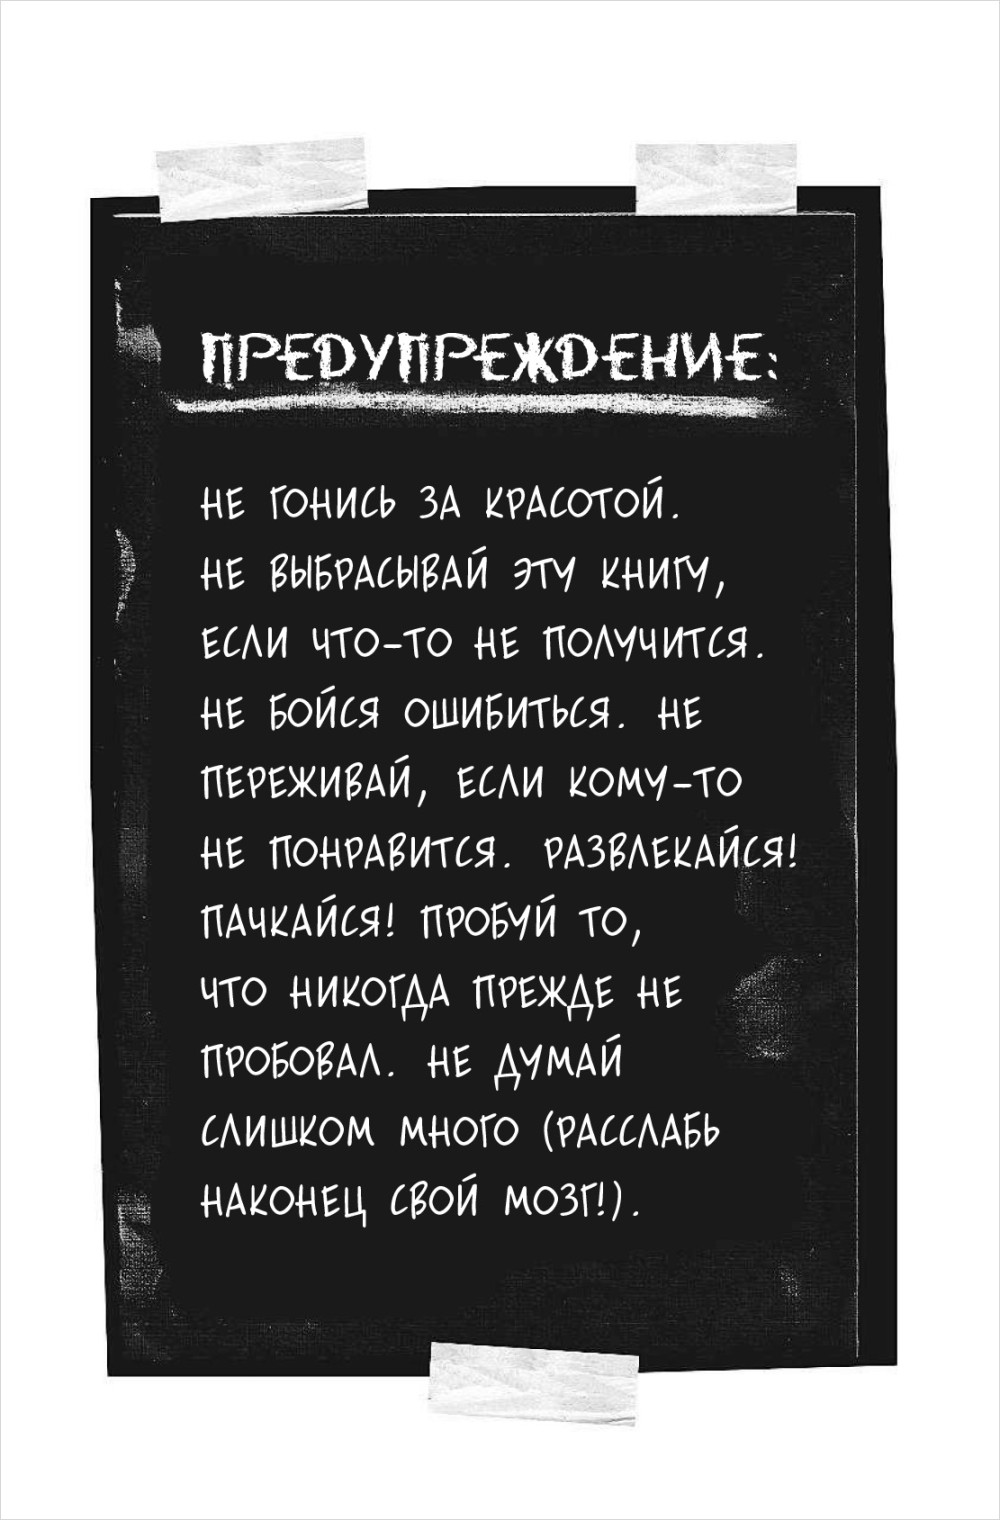 ПРЕДУПРЕЖДЕНИЕ:
НЕ ГОНИСЬ ЗА КРАСОТОЙ.
НЕ ВЫБРАСЫВАЙ ЭТУ КНИГУ,
ЕСЛИ ЧТО-ТО НЕ ПОЛУЧИТСЯ.
НЕ БОЙСЯ ОШИБИТЬСЯ. НЕ
ПЕРЕЖИВАЙ, ЕСЛИ КОМУ-ТО
НЕ ПОНРАВИТСЯ. РАЗВЛЕКАЙСЯ!
ПАЧКАЙСЯ! ПРОБУЙ ТО,
ЧТО НИКОГДА ПРЕЖДЕ НЕ
ПРОБОВАЛ. НЕ ДУМАЙ
СЛИШКОМ МНОГО (РАССЛАБЬ
НАКОНЕЦ СВОЙ МОЗГ!).